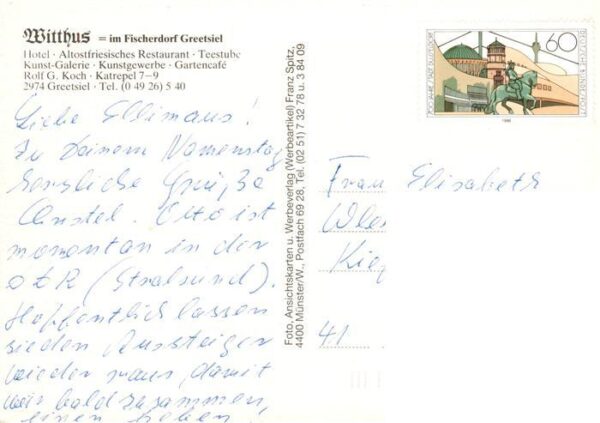 Witthus = im Fischerdorf Greetsiel
Hotel · Altostfriesisches Restaurant · Teestube
Kunst-Galerie · Kunstgewerbe · Gartencafé
Rolf G. Koch · Katrepel 7–9
2974 Greetsiel · Tel. (0 49 26) 5 40
Liebe Ellimaus!
Zu Deinem Namenstag
herzliche Grüße
Christel. Otto ist
momentan in der
(Stralsund).
Hoffentlich lassen
sie den Aussteiger
wieder raus, damit
wir bald zusammen
einen heben
Foto, Ansichtskarten u. Werbeverlag (Werbeartikel) Franz Spitz,
4400 Münster/W., Postfach 69 28, Tel. (02 51) 7 32 78 u. 3 84 09
60
DEUTSCHE BUNDESPOST
700 JAHRE STADT DÜSSELDORF
1988
Frau Elisabeth
41